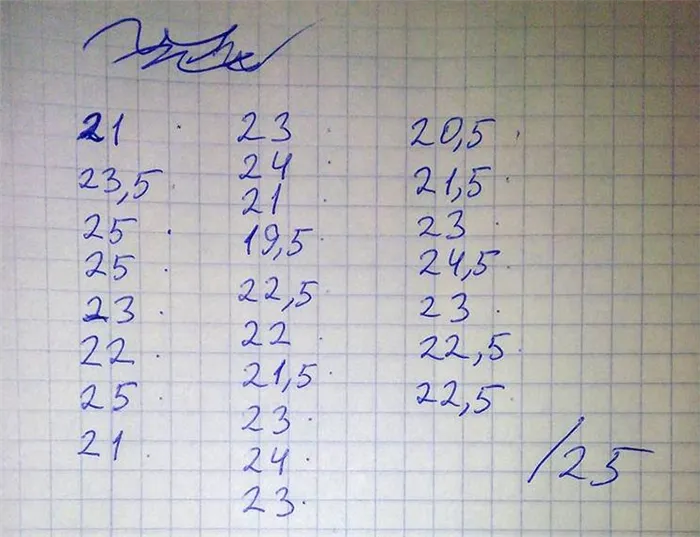 21
23,5
25
25
23
22
25
21
23
24
21
19,5
22,5
22
21,5
23
24
23
20,5
21,5
23
24,5
23
22,5
22,5
/25